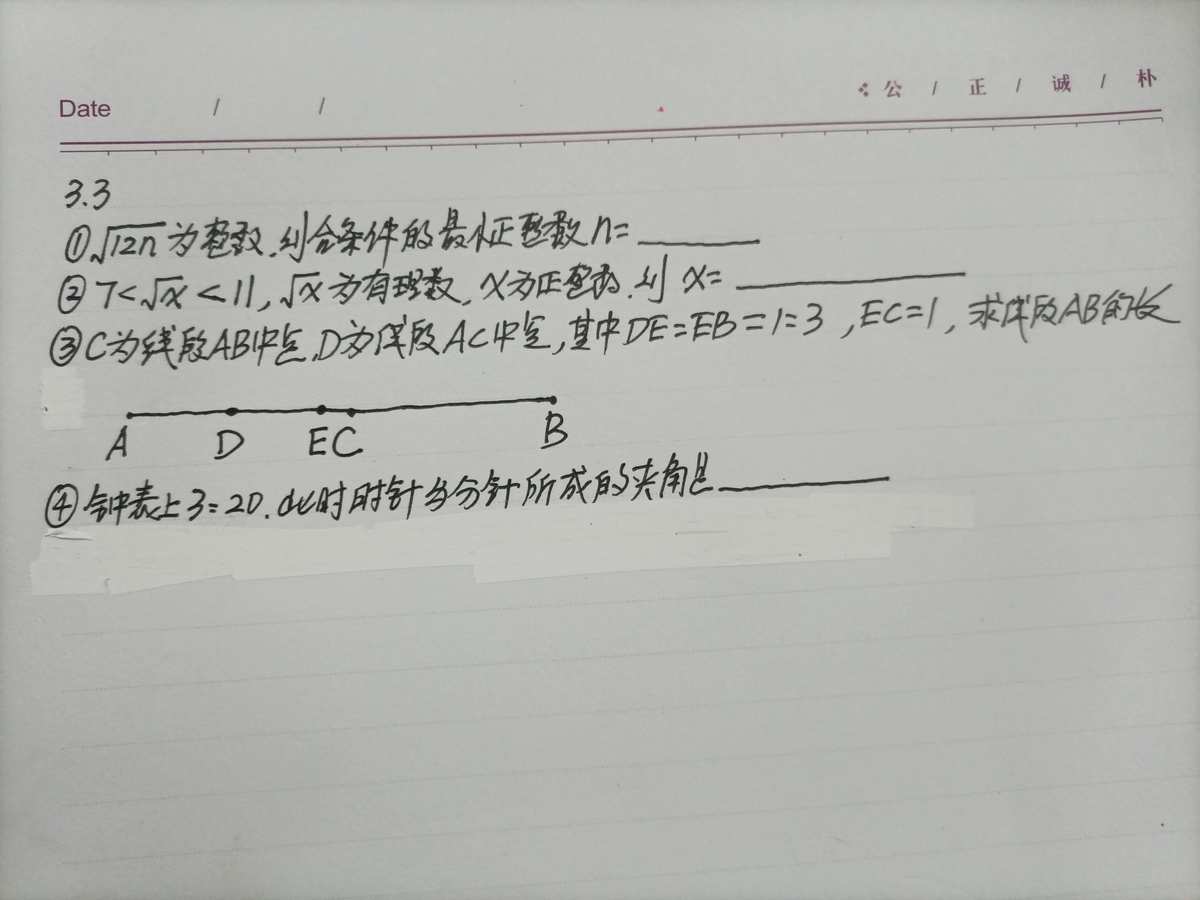 Date / /
公 / 正 / 诚 / 朴
3.3
①√12n为整数.则合条件的最小正整数n=______
②7<√x<11,√x为有理数,x为正整数.则x=______
③C为线段AB中点.D为线段AC中点,其中DE=EB=1=3,EC=1,求线段AB的长
A D E C B
④钟表上3=20.此时时针与分针所成的夹角是______